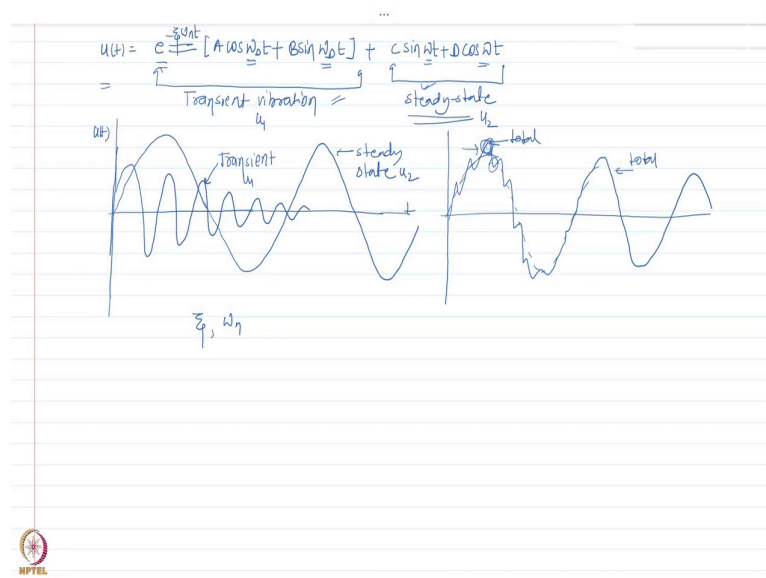 ...
u(t) = e^{-ξωnt} [A cos ω_D t + B sin ω_D t] + C sin ωt + D cos ωt
=
Transient vibration =
u₁
steady-state
u₂
u(t)
Transient
u₁
steady
state u₂
total
total
ξ, ωn
NPTEL